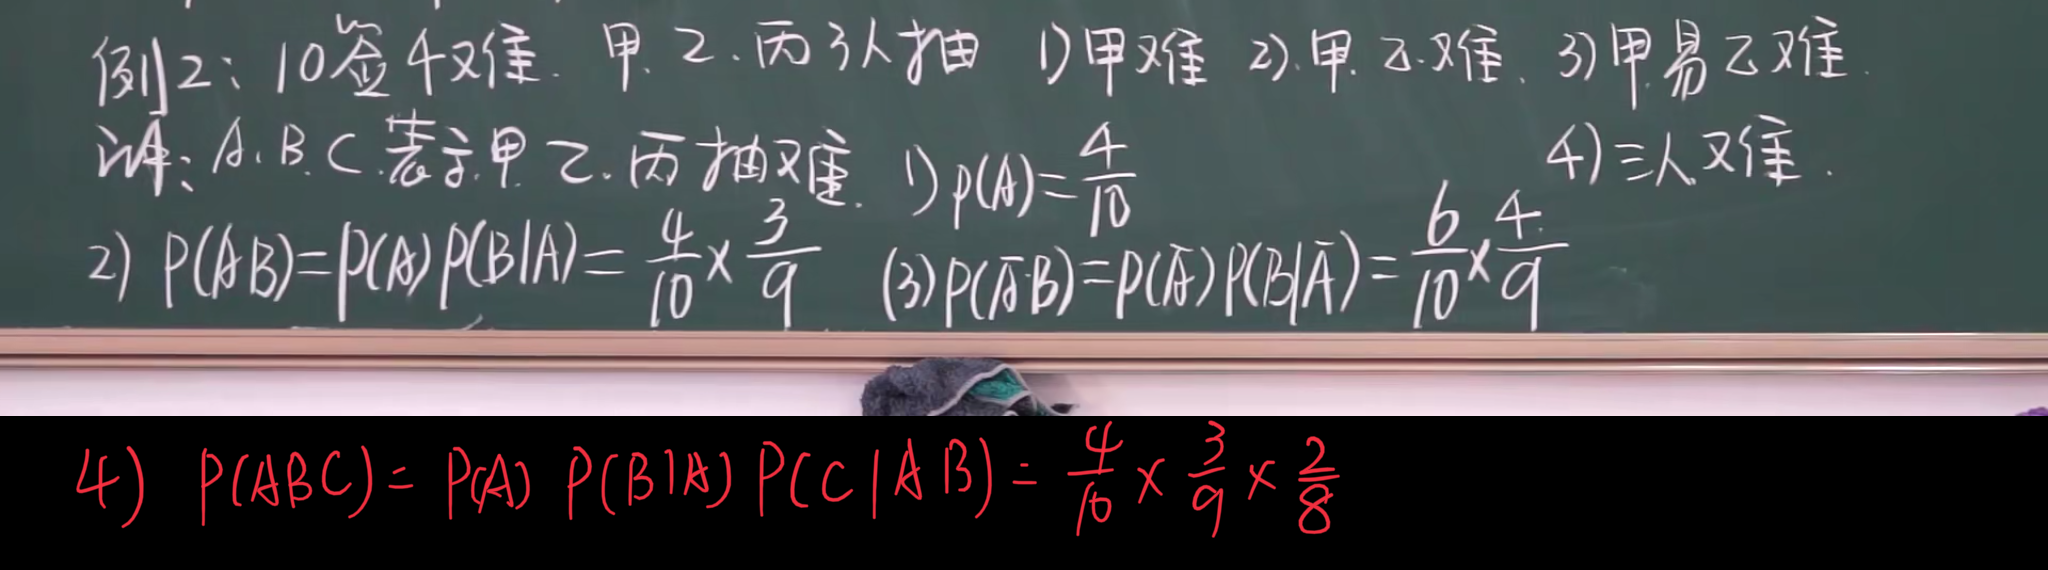 例2: 10签4难. 甲.乙.丙3人抽 1)甲难 2).甲.乙.难. 3)甲.易乙难.
4)三人难.
: A.B.C.表示甲.乙.丙抽难. 1)P(A)=4/10
2) P(AB)=P(A)P(B|A)=4/10×3/9 (3)P(ĀB)=P(Ā)P(B|Ā)=6/10×4/9
4) P(ABC)=P(A) P(B|A) P(C|AB)=4/10×3/9×2/8